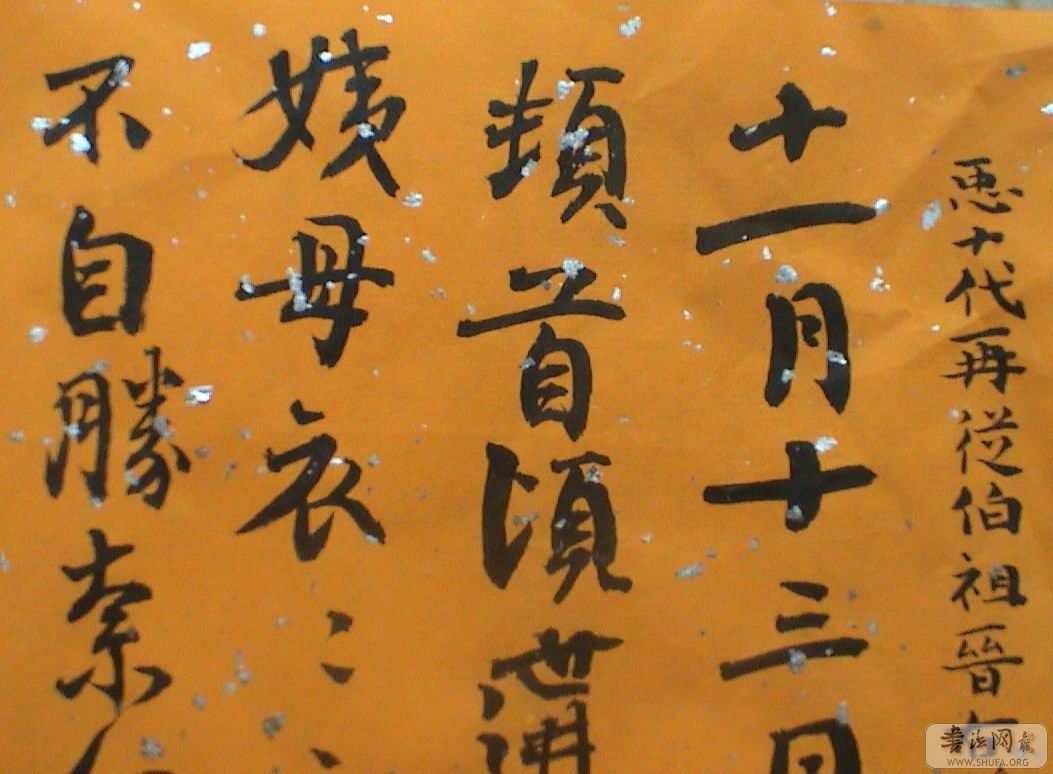 十代再從伯祖晉
十一月十三日
頓首頃
姨母哀
不自勝奈
書法网
WWW.SHUFA.ORG